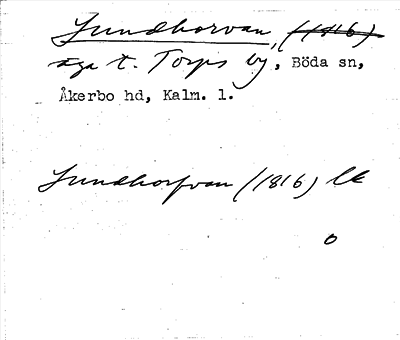 Sundhorvan, (1816)
äga t. Torps by, Böda sn,
Åkerbo hd, Kalm. l.
Sundhorfvan (1816) lk
o